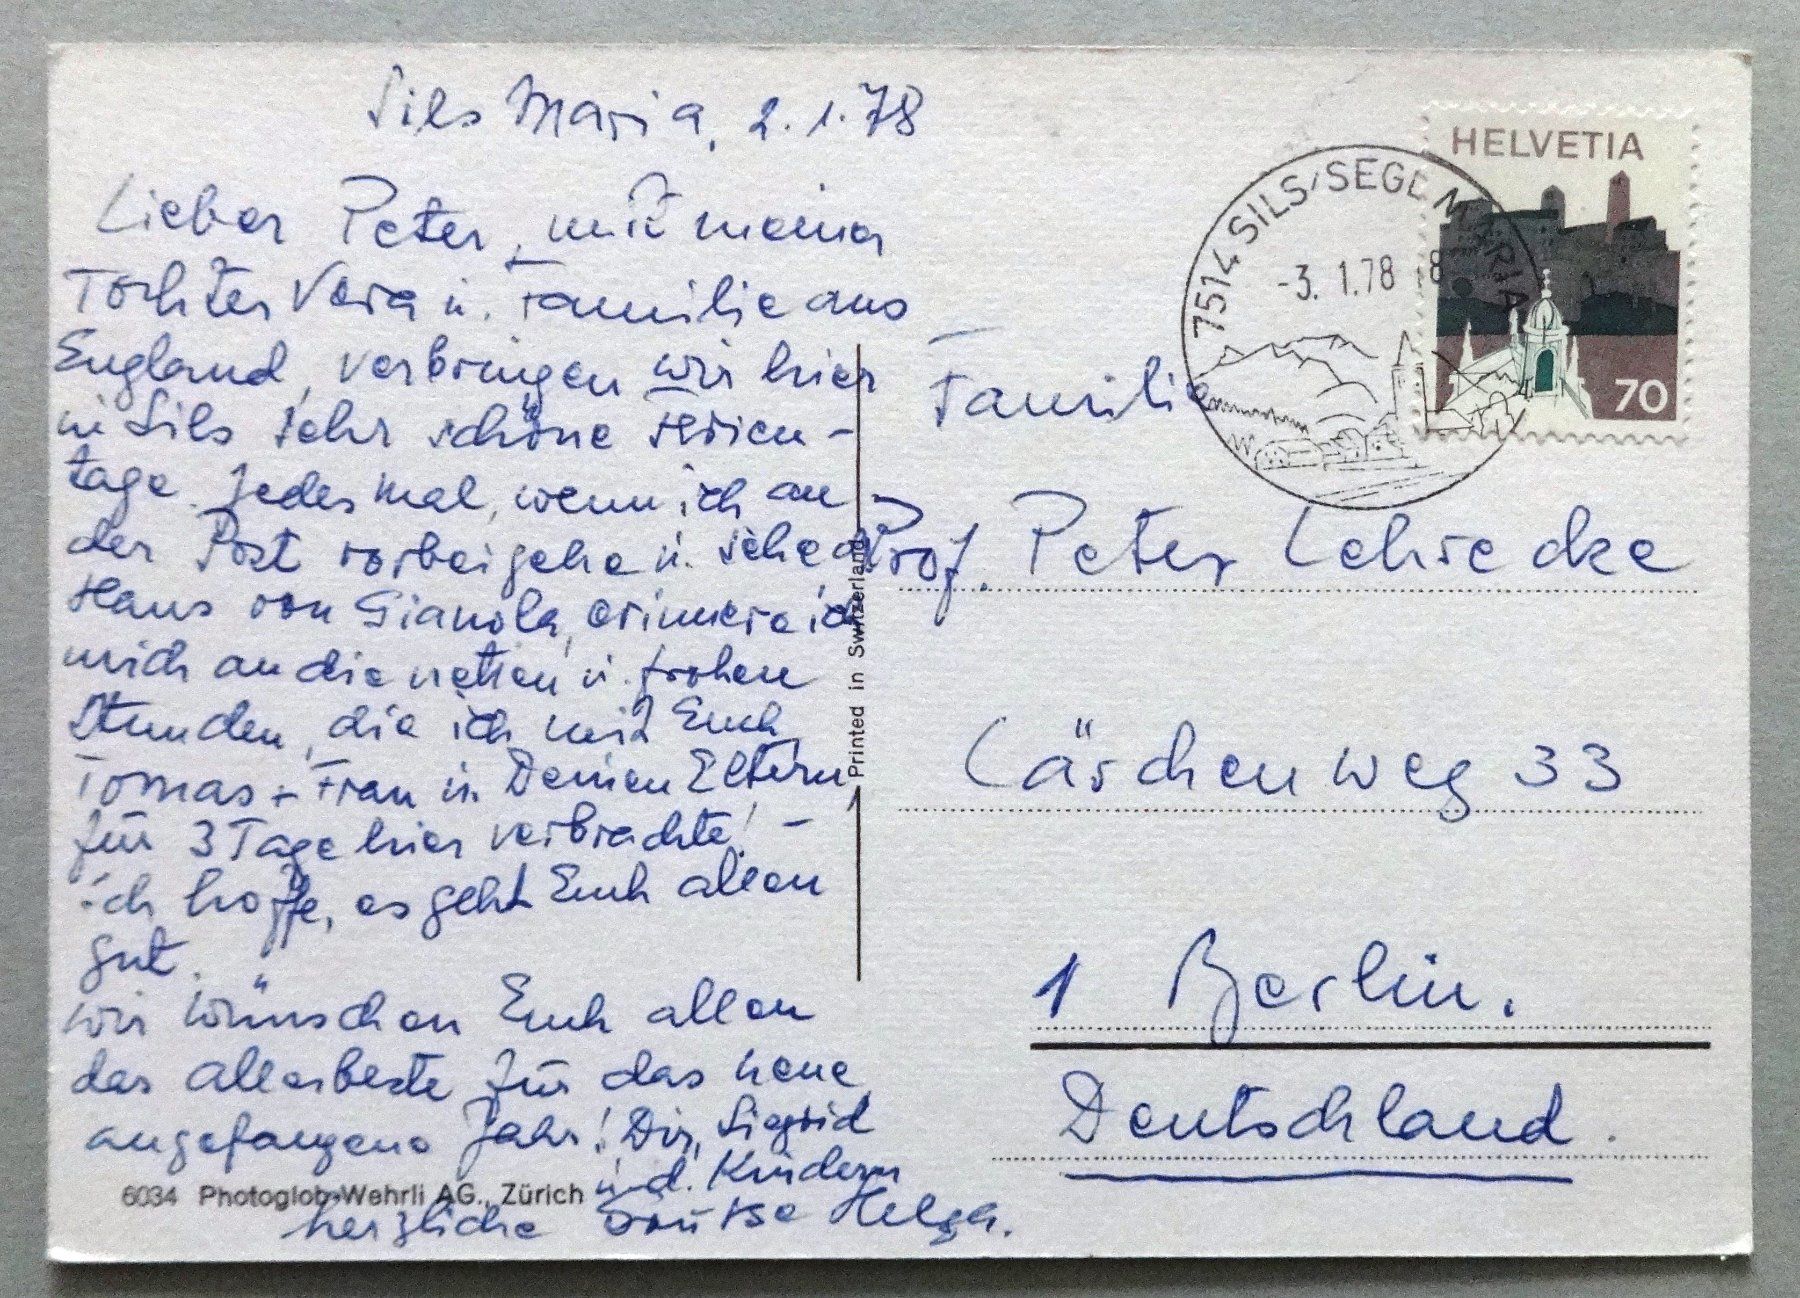 Sils Maria, 2.1.78
Lieber Peter, mit meiner
Tochter Vera u. Familie aus
England, verbringen wir hier
in Sils sehr schöne Ferien-
tage. Jedesmal, wenn ich an
der Post vorbeigehe u. sehe d.
Haus von Gianola, erinnere ich
mich an die netten u. frohen
Stunden, die ich mit Euch,
Tomas + Frau u. Deinen Eltern,
für 3 Tage hier verbrachte! -
ich hoffe, es geht Euch allen
gut.
Wir wünschen Euch allen
das allerbeste für das neue,
angefangene Jahr! Dir, Sigrid
u. d. Kindern
herzliche Grüsse Helga.
6034 Photoglob-Wehrli AG., Zürich
Printed in Switzerland
HELVETIA
70
7514 SILS/SEGL MARIA
-3. 1.78 18
Familie
Prof. Peter Lehrecke
Läschenweg 33
1 Berlin.
Deutschland.